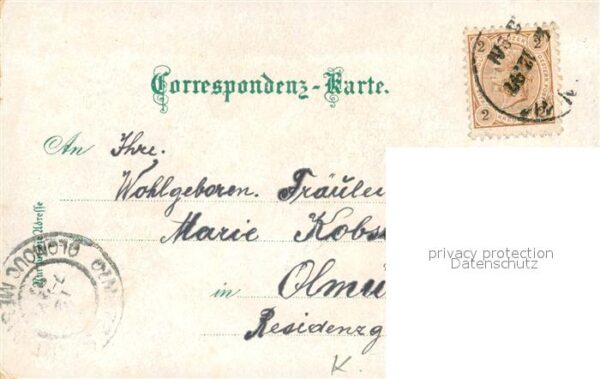 2 2
2 2
Correspondenz-Karte.
An Ihre.
Wohlgeboren. Fräulei
Marie Kobs
in Olmü
Residenzg
K.
Nur für die Adresse
OLOMOUC MĚS
privacy protection
Datenschutz